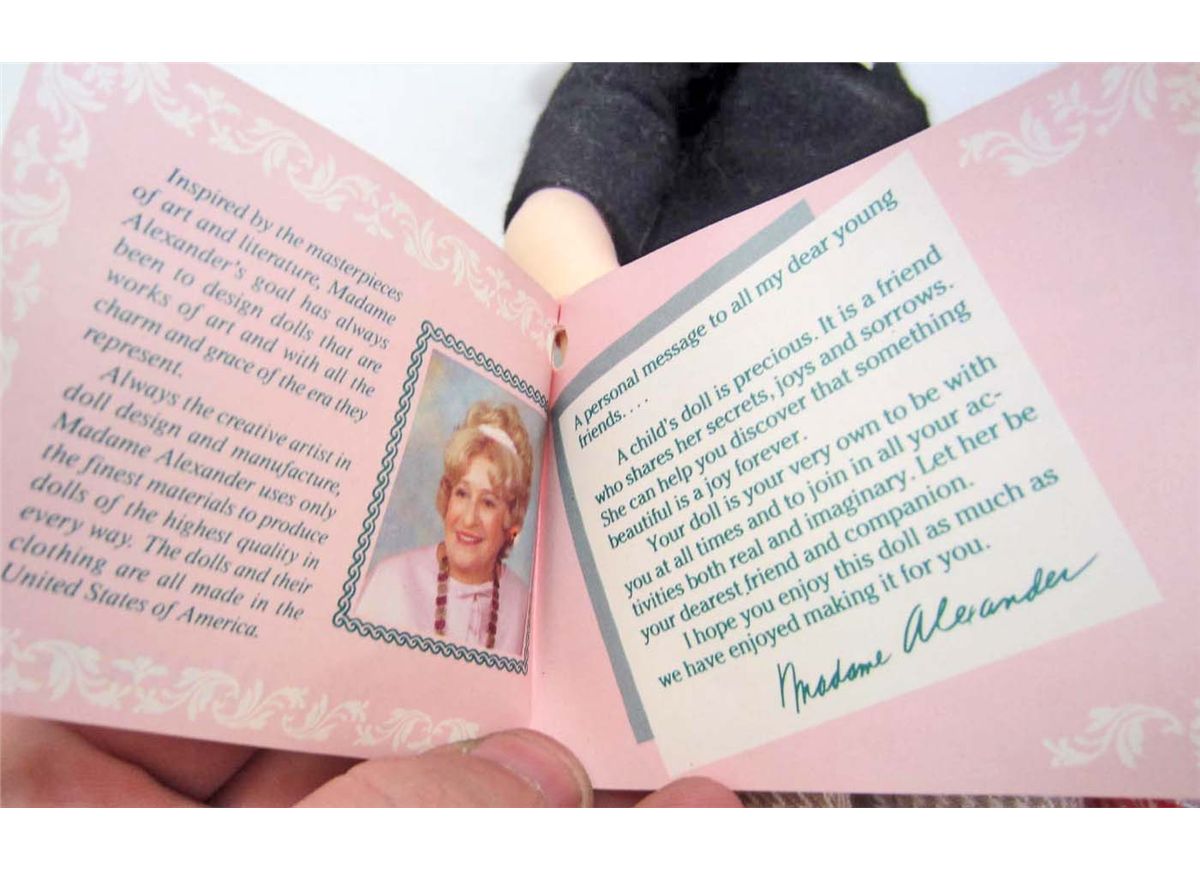 Inspired by the masterpieces
of art and literature, Madame
Alexander's goal has always
been to design dolls that are
works of art and with all the
charm and grace of the era they
represent.
Always the creative artist in
doll design and manufacture,
Madame Alexander uses only
the finest materials to produce
dolls of the highest quality in
every way. The dolls and their
clothing are all made in the
United States of America.
A personal message to all my dear young
friends....
A child's doll is precious. It is a friend
who shares her secrets, joys and sorrows.
She can help you discover that something
beautiful is a joy forever.
Your doll is your very own to be with
you at all times and to join in all your ac-
tivities both real and imaginary. Let her be
your dearest friend and companion.
I hope you enjoy this doll as much as
we have enjoyed making it for you.
Madame Alexander